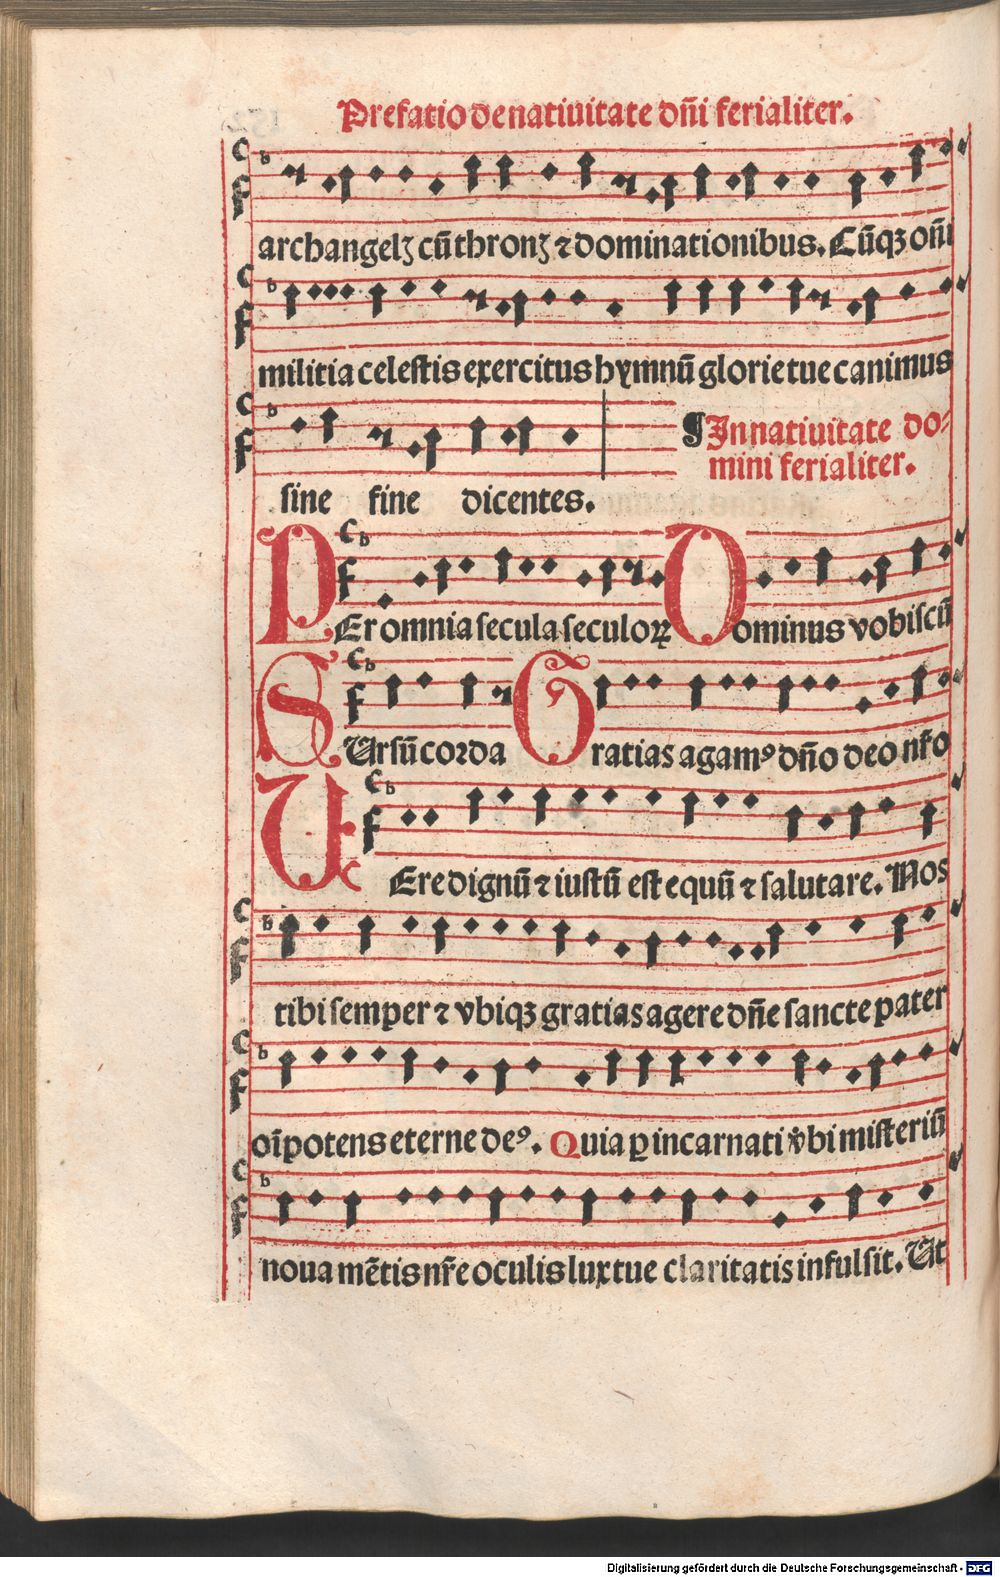 Prefatio de natiuitate dn̄i ferialiter.
archangelꝫ cū thronꝫ ⁊ dominationibus. Cūqꝫ on̄i
militia celestis exercitus hymnū glorie tue canimus
¶ In natiuitate do⸗
mini ferialiter.
sine fine dicentes.
PEr omnia secula seculoꝝ Dominus vobiscū
SUrsū corda Gratias agamꝰ dn̄o deo nr̄o
VEre dignū ⁊ iustū est equū ⁊ salutare. Nos
tibi semper ⁊ vbiqꝫ gratias agere dn̄e sancte pater
oīpotens eterne deꝰ. Quia ꝑ incarnati v̄bi misteriū
noua mētis nr̄e oculis lux tue claritatis infulsit. Ut
Digitalisierung gefördert durch die Deutsche Forschungsgemeinschaft - DFG